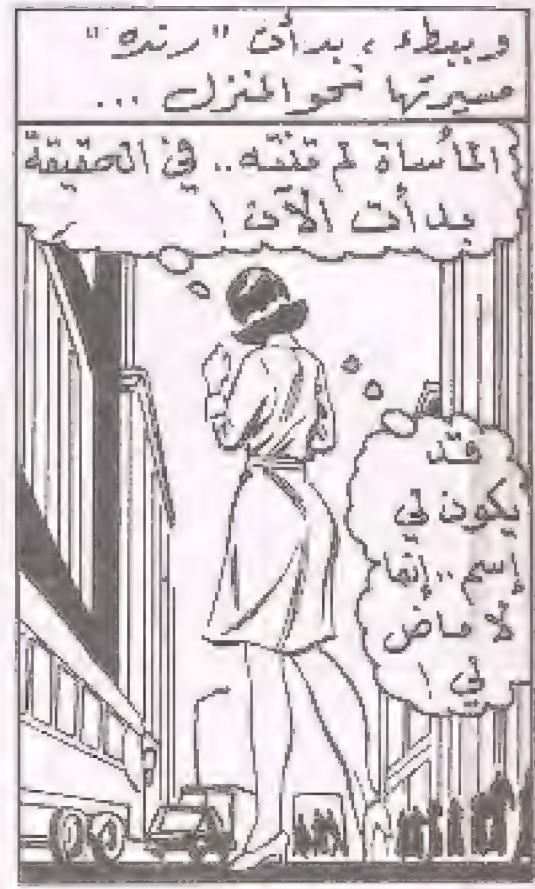 وببطء ، بدأت "رنده"
مسيرتها نحو المنزل ...
المأساة لم تنته .. في الحقيقة
بدأت الآن !
قد
يكون لي
إسم .. إنما
لا ماض
لي !